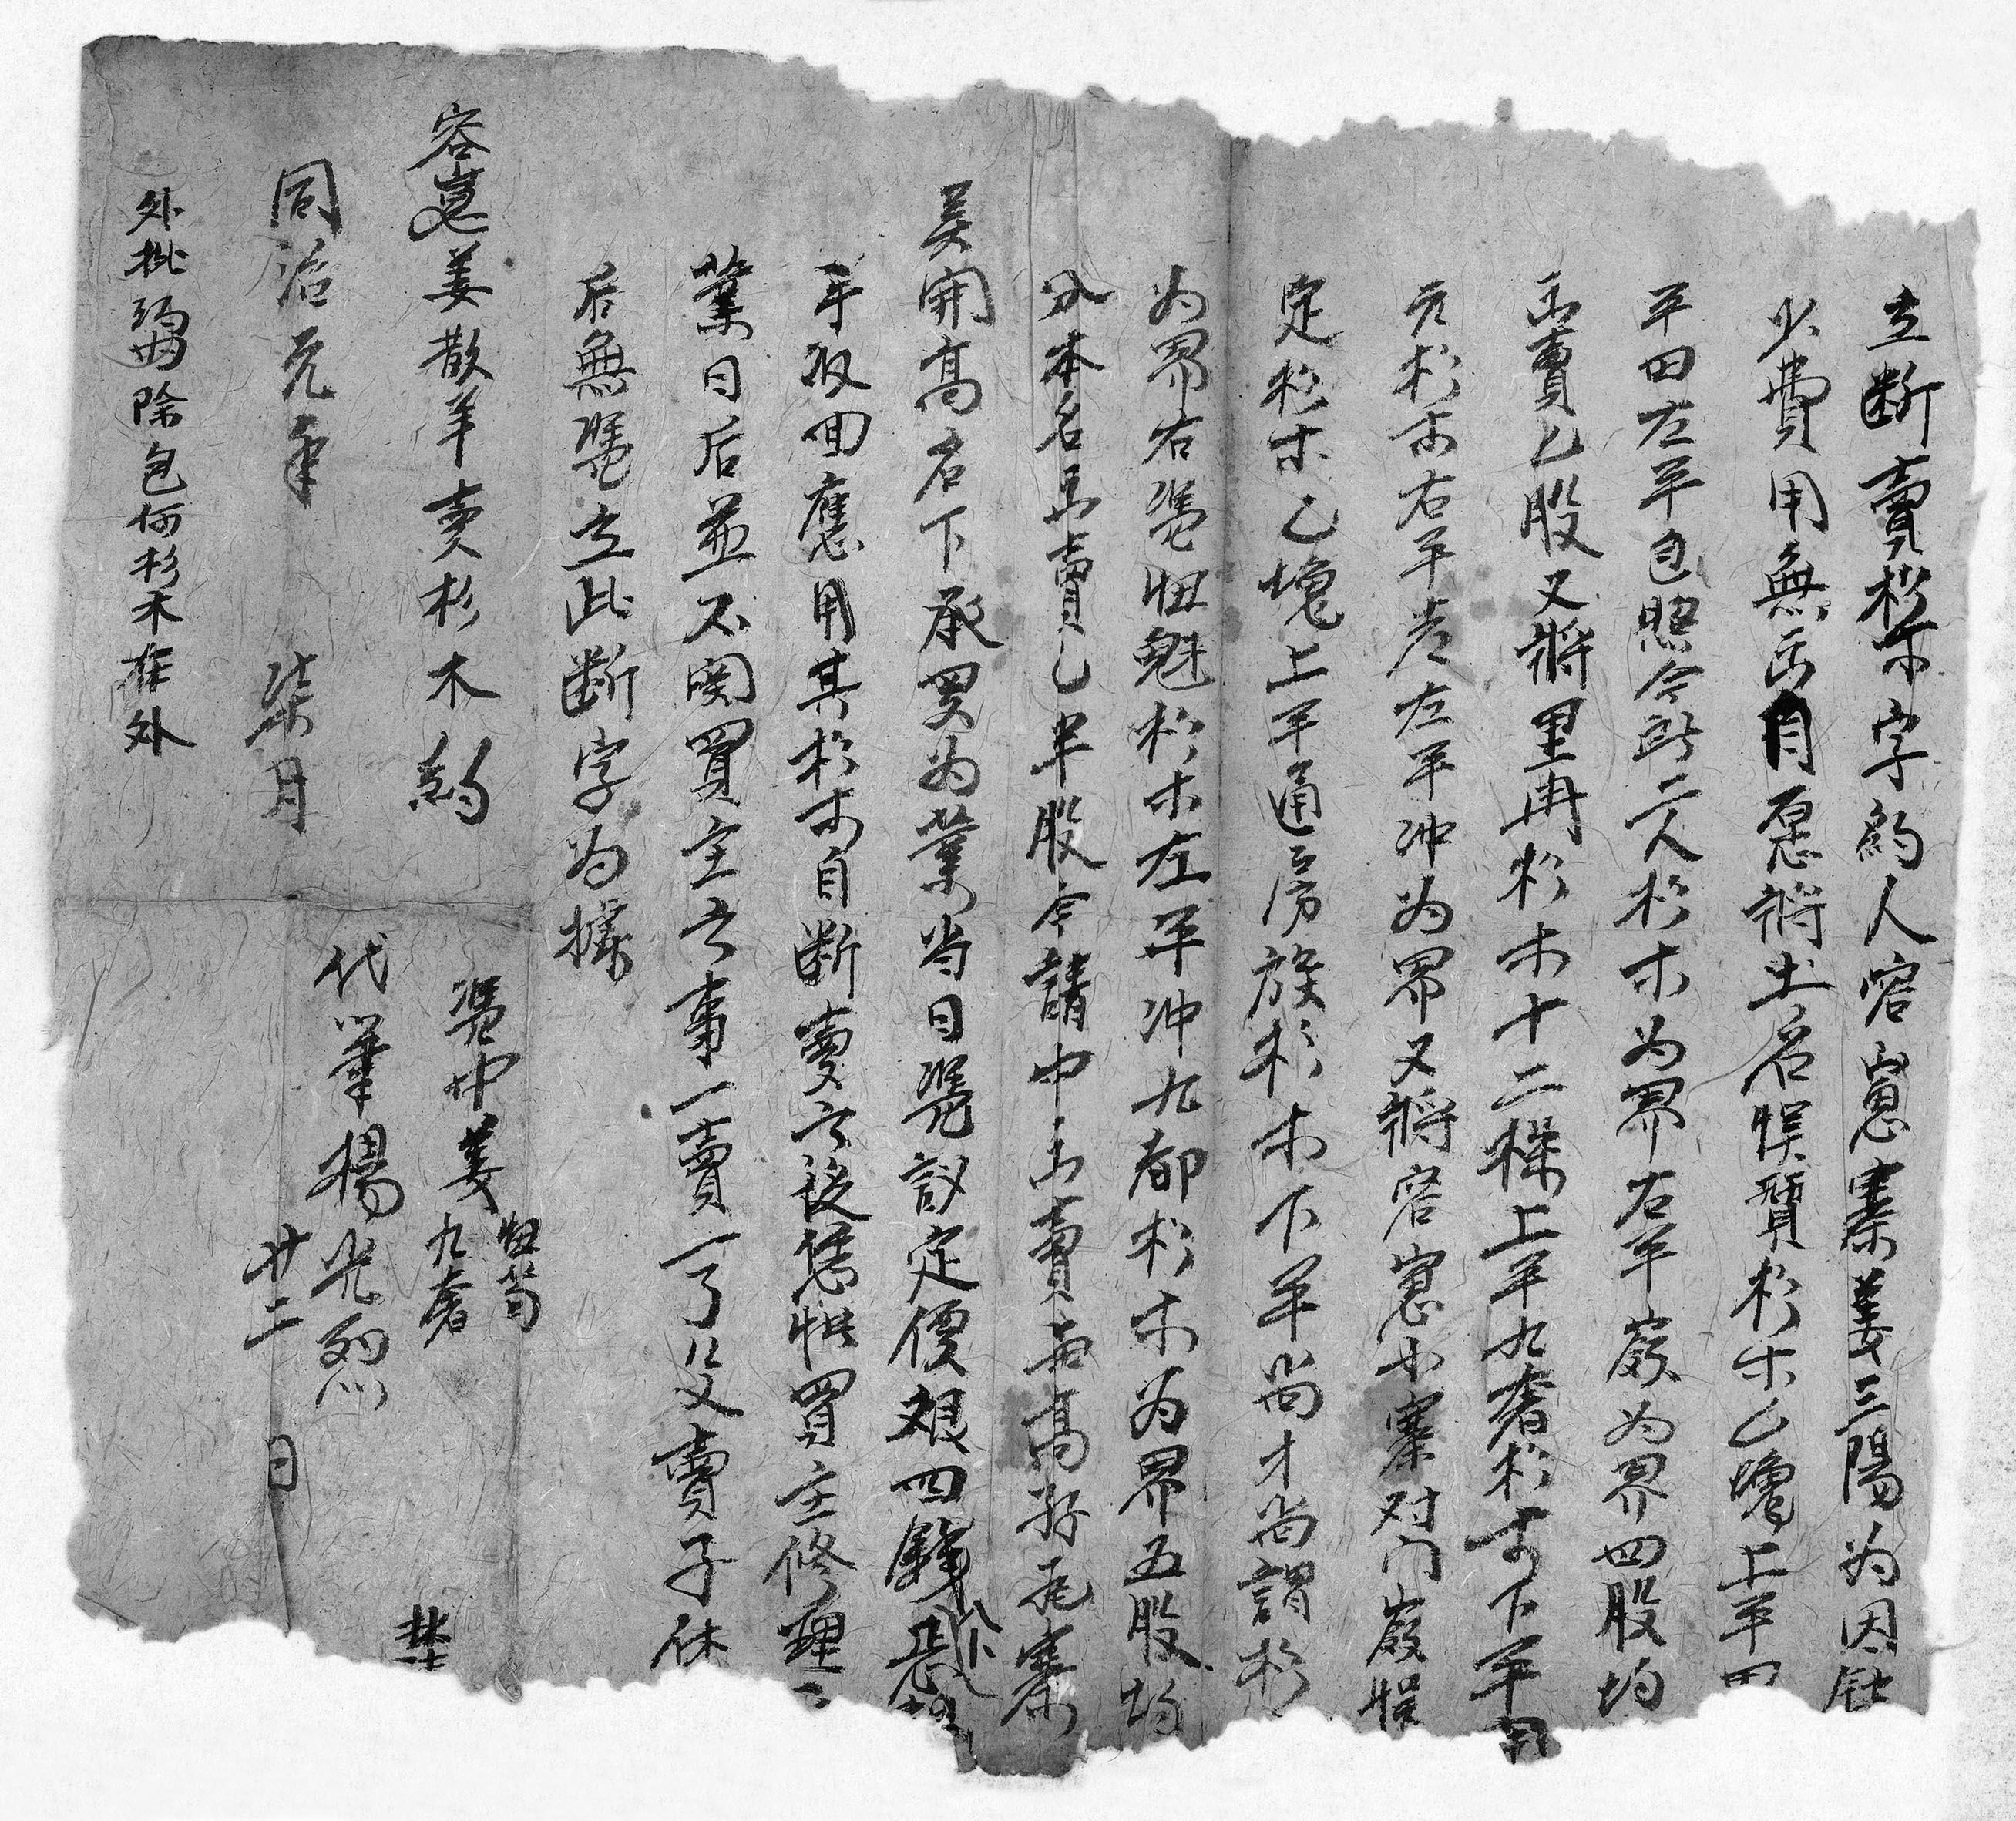 立断賣杉木字約人容嵬寨姜三陽為因缺
少費用無出自愿將土名悮寶杉木乙塊上平田
平田左平包照令跃二人杉木為界右平嚴為界四股均
出賣乙股又將里冉杉木十二株上平九耆杉木下平
元杉木右平嶺左平冲為界又將容嵬小寨对门嚴悮
定杉木乙塊上平通房族杉木下平尚才尚謂杉
為界右凴忸魁杉木左平冲九都杉木為界五股均
分本名出賣乙半股今請中出賣高孖尾寨
吴開高名下承買為業当日凴議定價艮四錢
手收回應用其杉木自断賣之後恁憑買主修理
業日后並不関買主之事一賣一了父賣子休
后無凴立此断字為據
容嵬姜散羊卖杉木約
凴中姜 妞苟 九耆
代筆楊光烈
同治元年 柒月 廿二 日
外批約內除包何杉木在外